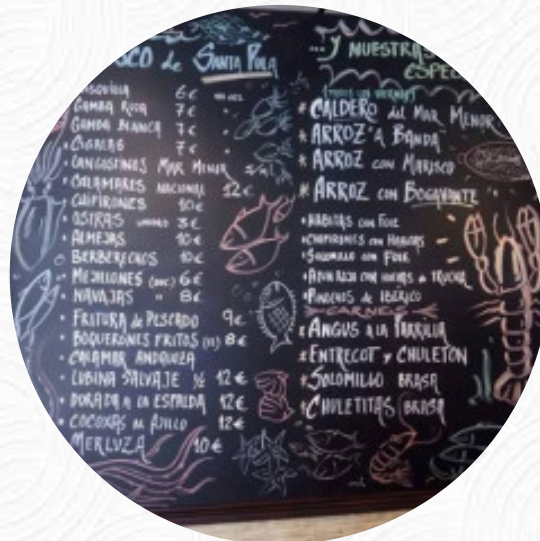 CO de SANTA POLA
QUISQUILLA 6€
GAMBA ROJA 7€
GAMBA BLANCA 7€
CIGALAS 7€
LANGOSTINOS MAR MENOR S/M
CALAMARES NACIONAL 12€
CHIPIRONES 10€
OSTRAS UNIDAD 3€
ALMEJAS 10€
BERBERECHOS 10€
MEJILLONES (DOC) 6€
NAVAJAS " 8€
FRITURA de PESCADO 9€
BOQUERONES FRITOS 8€
CALAMAR ANDALUZA
LUBINA SALVAJE ½ 12€
DORADA A LA ESPALDA 12€
COCOXAS AL AJILLO 12€
MERLUZA 10€
...Y NUESTRAS
ESPEC
(TODOS LOS VIERNES)
* CALDERO del MAR MENOR
* ARROZ A BANDA
* ARROZ CON MARISCO
* ARROZ CON BOGAVANTE
• HABITAS CON FOIE
• CHIPIRONES CON HABITAS
• SOLOMILLO CON FOIE
• ATUN ROJO CON HUEVAS de TRUCHA
• PINCHOS de IBERICO
CARNES
* ANGUS A LA PARRILLA
* ENTRECOT Y CHULETON
* SOLOMILLO BRASA
* CHULETITAS BRASA